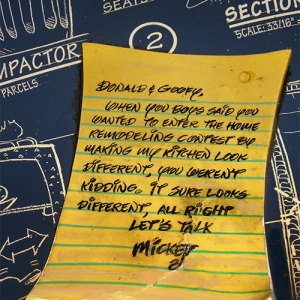 SEATS
SECTION
SCALE: 33/16"
2
MPACTOR
PARCELS
DONALD & GOOFY,
WHEN YOU BOYS SAID YOU
WANTED TO ENTER THE HOME
REMODELING CONTEST BY
MAKING MY KITCHEN LOOK
DIFFERENT, YOU WEREN'T
KIDDING. IT SURE LOOKS
DIFFERENT, ALL RIGHT
LET'S TALK
MICKEY